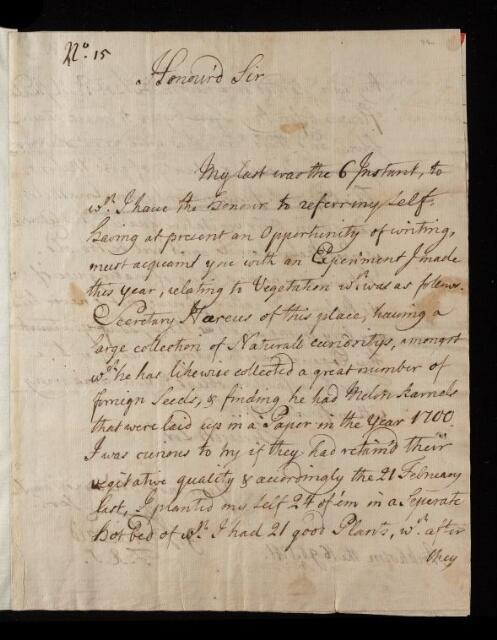 No. 15
Honour'd Sir
My last was the 6 Instant, to
wch. I have the honour to referr my self.
having at present an Opportunity of writing,
must acquaint you with an Experiment I made
this year, relating to Vegetation wch. was as follows.
Secretary Hærcus of this place, having a
large collection of Naturall curiositys, amongst
wch. he has likewise collected a great number of
forreign Seeds, & finding he had Melon karnals
that were laid up in a Paper in the Year 1700.
I was curious to try if they had retain'd their
vegitative quality & accordingly the 21 February
last, I planted my self 24 of 'em in a Seperate
hot bed of wch. I had 21 good Plants, wch. after
they